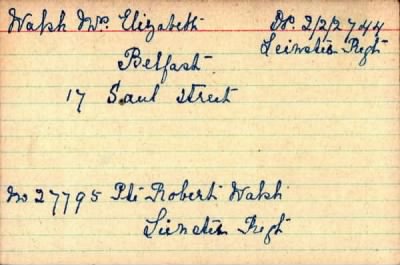 Walsh Mrs. Elizabeth Dr. 2/2/2744
Leinster Regt
Belfast
17 Saul Street
No 27795 Pte Robert Walsh
Leinster Regt